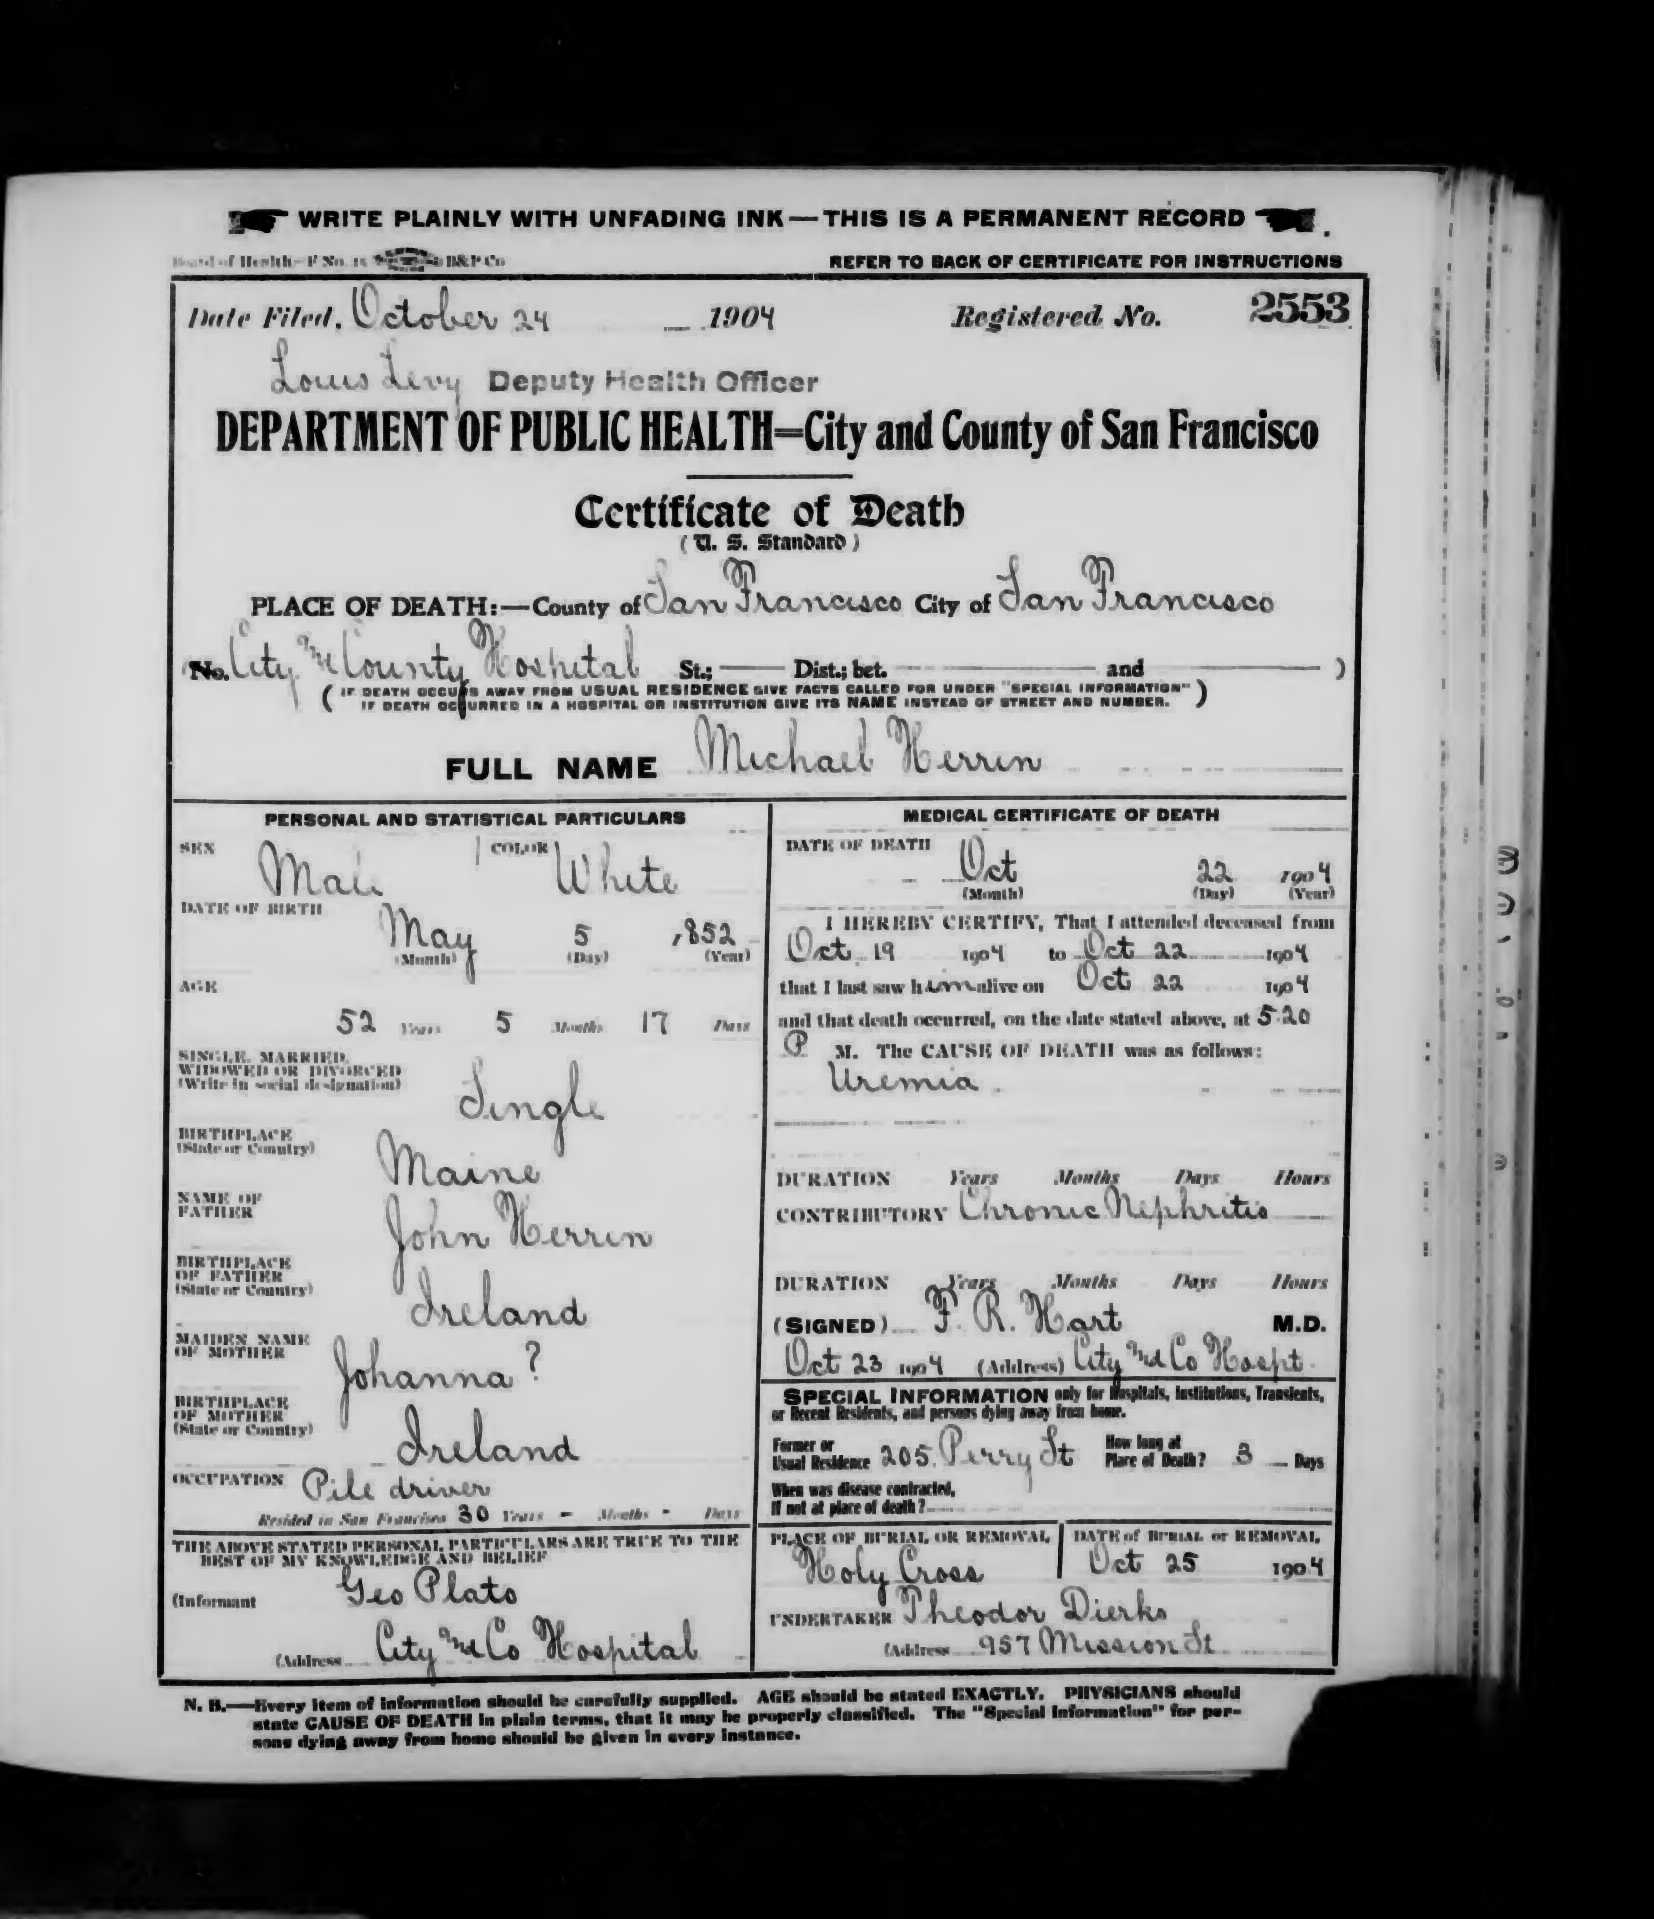 WRITE PLAINLY WITH UNFADING INK—THIS IS A PERMANENT RECORD
Board of Health—F No. 15 B&P Co
REFER TO BACK OF CERTIFICATE FOR INSTRUCTIONS
Date Filed, October 24 1904 Registered No. 2553
Louis Levy Deputy Health Officer
DEPARTMENT OF PUBLIC HEALTH=City and County of San Francisco
Certificate of Death
( U. S. Standard )
PLACE OF DEATH:—County of San Francisco City of San Francisco
No. City and County Hospital St.; Dist.; bet. and )
( IF DEATH OCCURS AWAY FROM USUAL RESIDENCE GIVE FACTS CALLED FOR UNDER "SPECIAL INFORMATION"
IF DEATH OCCURRED IN A HOSPITAL OR INSTITUTION GIVE ITS NAME INSTEAD OF STREET AND NUMBER. )
FULL NAME Michael Herrin
PERSONAL AND STATISTICAL PARTICULARS
SEX Male COLOR White
DATE OF BIRTH
May 5 1852
(Month) (Day) (Year)
AGE
52 Years 5 Months 17 Days
SINGLE, MARRIED,
WIDOWED OR DIVORCED
(Write in social designation)
Single
BIRTHPLACE
(State or Country)
Maine
NAME OF
FATHER
John Herrin
BIRTHPLACE
OF FATHER
(State or Country)
Ireland
MAIDEN NAME
OF MOTHER
Johanna ?
BIRTHPLACE
OF MOTHER
(State or Country)
Ireland
OCCUPATION Pile driver
Resided in San Francisco 30 Years - Months - Days
THE ABOVE STATED PERSONAL PARTICULARS ARE TRUE TO THE
BEST OF MY KNOWLEDGE AND BELIEF
(Informant Geo Plato
(Address City and Co Hospital
MEDICAL CERTIFICATE OF DEATH
DATE OF DEATH
Oct 22 1904
(Month) (Day) (Year)
I HEREBY CERTIFY, That I attended deceased from
Oct 19 1904 to Oct 22 1904
that I last saw him alive on Oct 22 1904
and that death occurred, on the date stated above, at 5.20
P M. The CAUSE OF DEATH was as follows:
Uremia
DURATION Years Months Days Hours
CONTRIBUTORY Chronic Nephritis
DURATION Years Months Days Hours
(SIGNED) F. R. Hart M.D.
Oct 23 1904 (Address) City and Co Hospt.
SPECIAL INFORMATION only for Hospitals, Institutions, Transients,
or Recent Residents, and persons dying away from home.
Former or
Usual Residence 205 Perry St
How long at
Place of Death? 3 Days
When was disease contracted,
If not at place of death?
PLACE OF BURIAL OR REMOVAL
Holy Cross
DATE of BURIAL or REMOVAL
Oct 25 1904
UNDERTAKER Theodor Dierks
(Address 957 Mission St
N. B.—Every item of information should be carefully supplied. AGE should be stated EXACTLY. PHYSICIANS should
state CAUSE OF DEATH in plain terms, that it may be properly classified. The "Special Information" for per-
sons dying away from home should be given in every instance.